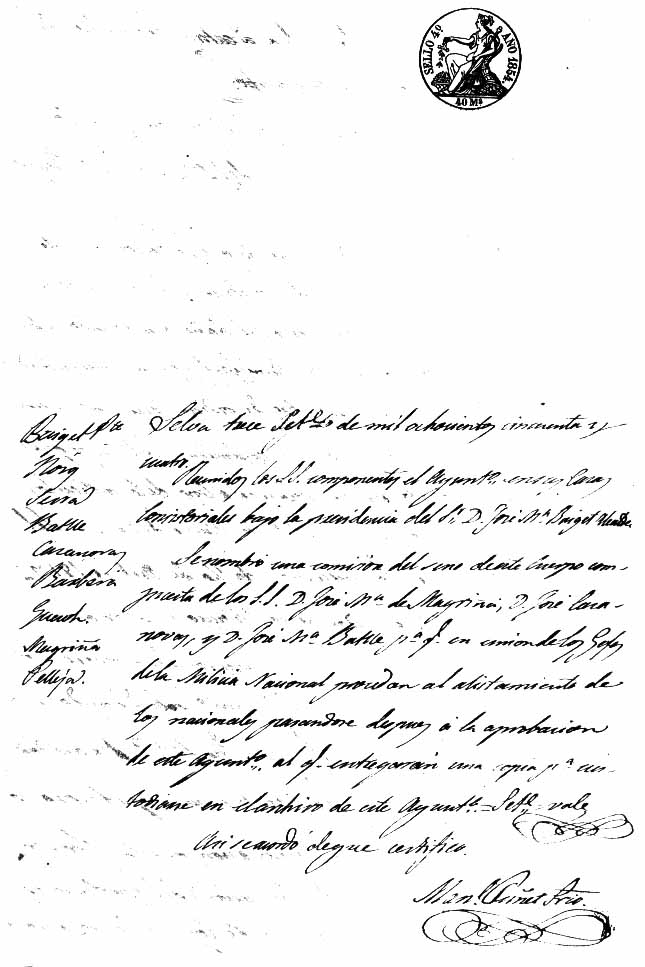 SELLO 4º AÑO 1854.
40 Mˢ
Baiget Pte
Roig
Serra
Batlle
Casanovas
Barberá
Guasch
Magriña
Pellejá.
Selva trece Set.e de mil ochocientos cincuenta y
cuatro.
Reunidos los S.S. componentes el Ayunt.o en sus Casas
Consistoriales bajo la presidencia del S.r D. José M.a Baiget Alcalde.
Se nombró una comision del seno de este Cuerpo com-
puesta de los S.S. D. José M.a de Magriñá, D. José Casa-
novas, y D. José M.a Batlle p.a q.e en union de los Gefes
de la Milicia Nacional procedan al alistamiento de
los nacionales pasandose despues á la aprobacion
de este Ayunt.o, al q.e entregarán una copia p.a cus-
todiarse en el archivo de este Ayunt.o = Set.e = vale
Asi se acordó de que certifico.
Man.l Srio.